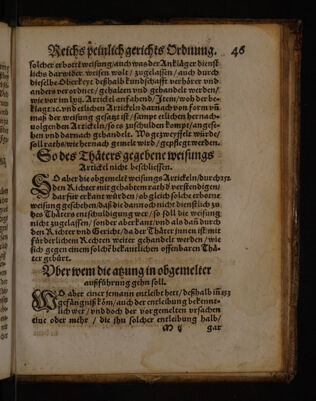 Reichs peinlich gerichts Ordnung. 46
solcher erbott weisung / auch was der Ankläger dienst
lichs darwider weisen wolt / zugelassen / auch durch
dieselbe Oberkeyt deßhalb kundschafft verhörer vnd
anders verordnet / gehalten vnd gehandelt werden /
wie vor im lxij. Artickel anfahend / Item / wo der be-
klagt ꝛc. vnd etlichen Artickeln darnach von form vnd
maß der weisung gesatzt ist / sampt etlichen hernach-
uolgenden Artickeln / so es zuschulden kompt / angese-
hen vnd darnach gehandelt. Wo gezweyffelt würde /
soll raths / wie hernach gemelt wird / gepflegt werden.
So des Thäters gegebene weisungs
Artickel nicht beschliessen.
SO aber die obgemelt weisungs Artickeln / durch
den Richter mit gehabtem rath d verstendigen /
darfür erkant würden / ob gleich solche erbotne
weisung geschehen / daß die dannoch nicht dienstlich zu
des Thäters entschuldigung wer / so soll die weisung
nicht zugelassen / sonder aberkant / vnd als dañ durch
den Richter vnd Gericht / da der Thäter jnnen ist / mit
fürderlichem Rechten weiter gehandelt werden / wie
sich gegen einem solchē bekantlichen offenbaren Thä-
ter gebürt.
Vber wem die atzung in obgemelter
außführung gehn soll.
WO aber einer jemand entleibt hett / deßhalb in 153
gefängniß köm / auch der entleibung bekennt-
lich wer / vnd doch der vorgemelten vrsachen
eine oder mehr / die jhn solcher entleibung halb /
M ij gar